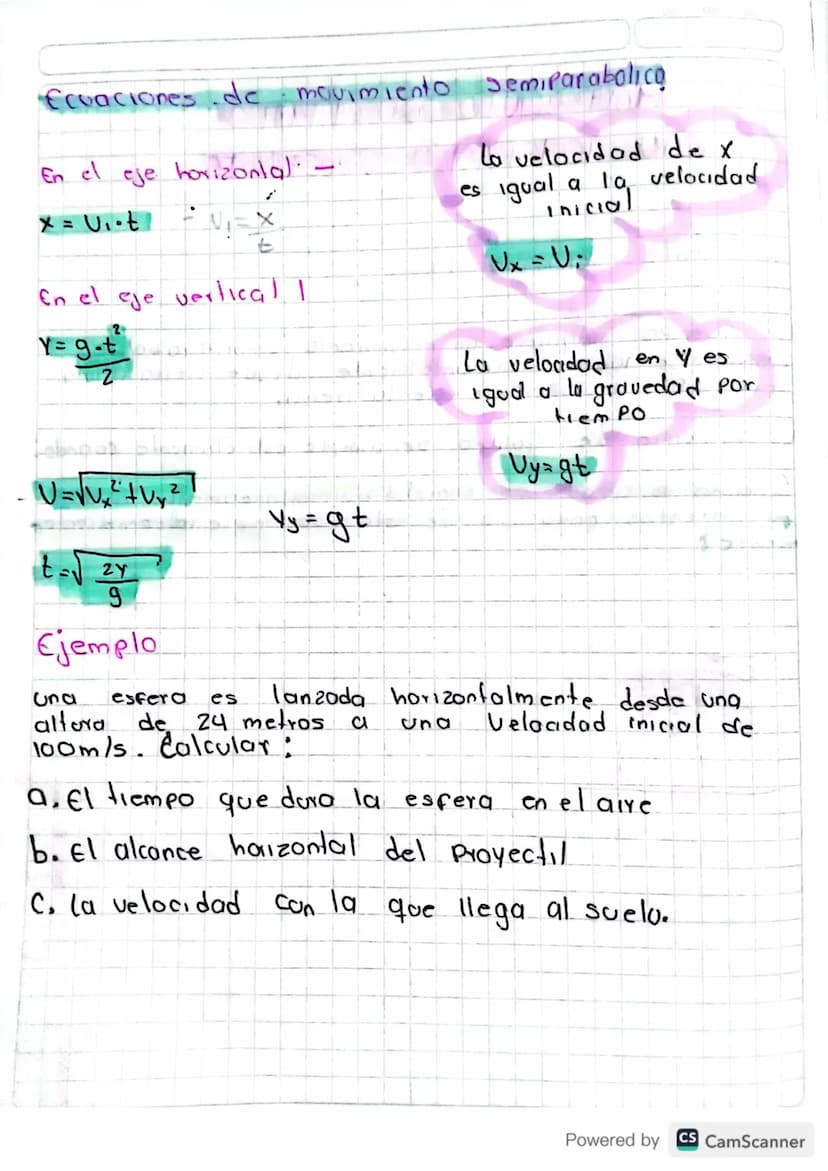 Ecuaciones de movimiento semiparabolico
En el eje horizontal: —
x = Vi·t ∴ Vi = x/t
En el eje vertical |
Y = g·t²/2
V=√Vx²+Vy²
Vy = gt
t=√2Y/g
La velocidad de x
es igual a la velocidad
inicial
Vx = Vi
La velocidad en Y es
igual a la gravedad por
tiempo
Vy=gt
Ejemplo
una esfera es lanzada horizontalmente desde una
altura de 24 metros a una velocidad inicial de
100m/s. Calcular:
a. El tiempo que dura la esfera en el aire
b. El alcance horizontal del proyectil
c. la velocidad con la que llega al suelo.
Powered by CS CamScanner